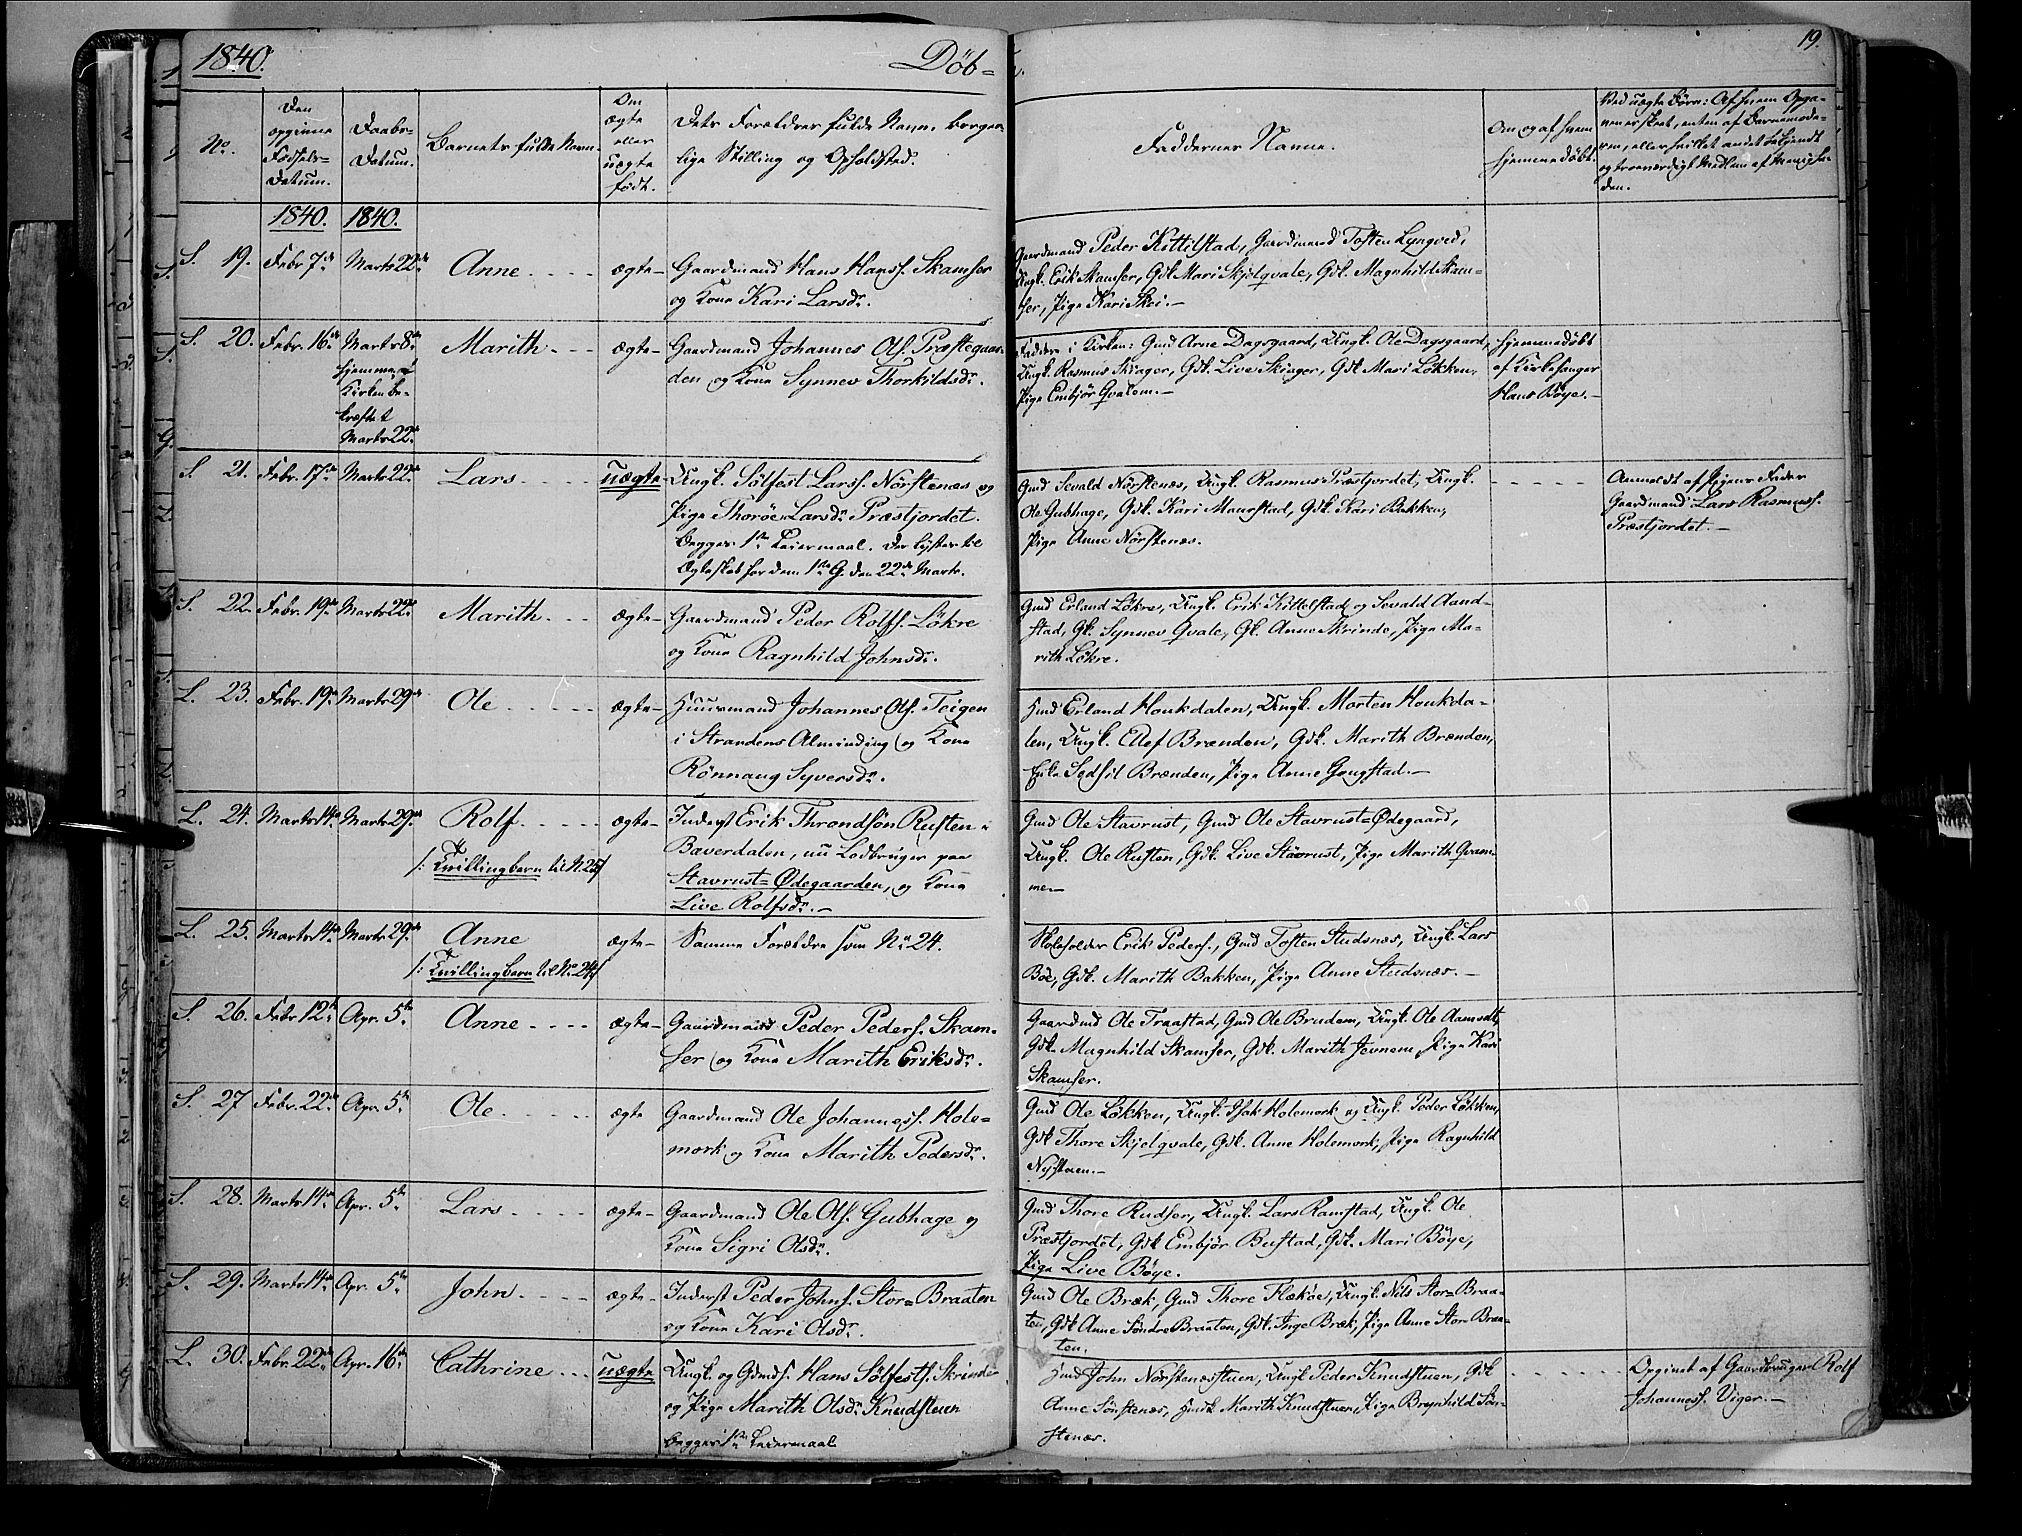 1840.
Døb=
19.
No.
Den opgivne Fødsels-Datum.
Daabs-Datum.
Barnets fulde Navn.
Om ægte eller uægte født.
Dets Forældres fulde Navn, borgerlige Stilling og Opholdsted.
Faddernes Navne.
Om og af hvem hjemmedøbt.
Ved uægte Børn: Af hvem Opgaven er skeet, enten af Barnemoderen, eller hvilket andet bekjendt og troeværdigt Medlem af Menigheden.
1840. 1840.
S. 19. Febr. 7de Marts 22de Anne ægte Gaardmand Hans Hanss. Skamser
og Kone Kari Larsdr.
Gaardmand Peder Kittilstad, Gaardmand Tosten Lyngved,
Ungk. Erik Skamser, Gdk. Mari Skjelqvale, Gdk. Magnhild Skam-
ser, Pige Kari Skei.
S. 20. Febr. 16de Marts 8de hjemme, Kirken bekræftet Marts 22de Marith ægte Gaardmand Johannes Ols. Præstegaar-
den og Kone Synnev Thorkildsdr.
Faddere i Kirken: Gmd Arne Dagsgaard, Ungk. Ole Dagsgaard,
Ungk. Rasmus Skiager, Gdk. Live Skiager, Gdk. Mari Løkken,
Pige Embjør Qvalem.
Hjemmedøbt af Kirkesanger Hans Bøye.
S. 21. Febr. 17de Marts 22de Lars uægte Ungk. Sølfest Larss. Nørstenæs og
Pige Thorøe Larsdr. Præstjordet.
Begges 1ste Leiermaal. Der lystes til
Ægteskab for dem 1ste G. den 22de Marts.
Gmd Sevald Nørstenæs, Ungk. Rasmus Præstjordet, Ungk.
Ole Gubhage, Gdk. Kari Maurstad, Gdk. Kari Bakken,
Pige Anne Nørstenæs.
Anmeldt af Pigens Fader
Gaardmand Lars Rasmuss.
Præstjordet.
S. 22. Febr. 19de Marts 22de Marith ægte Gaardmand Peder Rolfs. Løkre
og Kone Ragnhild Johnsdr.
Gmd Erland Løkre, Ungk. Erik Kittelstad og Sevald Aand-
stad, Gk. Synnev Qvale, Gk. Anne Skrinde, Pige Ma-
rith Løkre.
L. 23. Febr. 19de Marts 29de Ole ægte Huusmand Johannes Ols. Teigen
i Strandens Alminding og Kone
Rønnaug Syversdr.
Hmd Erland Houkdalen, Ungk. Morten Houkda-
len, Ungk. Ellef Brænden, Gdk. Marith Brænden,
Enke Sedsil Brænden, Pige Anne Gougstad.
L. 24. Marts 14de Marts 29de Rolf
/: Tvillingbarn til N. 25 :/
ægte Inderst Erik Throndsøn Rusten i
Bæverdalen, nu Lodbruger paa
Stavrust=Ødegaarden, og Kone
Live Rolfsdr.
Gmd Ole Stavrust, Gmd Ole Stavrust=Ødegaard,
Ungk. Ole Rusten, Gdk. Live Stavrust, Pige Marith Qvam-
me.
L. 25. Marts 14de Marts 29de Anne
/: Tvillingbarn til No. 24 :/
ægte Samme Forældre som No. 24.
Skoleholder Erik Peders., Gmd Tosten Studsnæs, Ungk. Lars
Bøe, Gdk. Marith Bakken, Pige Anne Studsnæs.
S. 26. Febr. 12te Apr. 5te Anne ægte Gaardmand Peder Peders. Skam-
ser og Kone Marith Eriksdr.
Gaardmd Ole Fraastad, Gmd Ole Brudem, Ungk. Ole Aamodt,
Gdk. Magnhild Skamser, Gdk. Marith Jevnem, Pige Kari
Skamser.
S. 27 Febr. 22de Apr. 5te Ole ægte Gaardmand Ole Johanness. Hole-
mork og Kone Marith Pedersdr.
Gmd Ole Løkken, Ungk. Isak Holemork og Ungk. Peder Løkken,
Gdk Thore Skjelqvale, Gdk. Anne Holemork, Pige Ragnhild
Nystuen.
S. 28. Marts 14de Apr. 5te Lars ægte Gaardmand Ole Ols. Gubhage og
Kone Sigri Olsdr.
Gmd Thore Rudser, Ungk. Lars Ramstad, Ungk. Ole
Præstjordet, Gdk Embjør Rustad, Gdk. Mari Bøye,
Pige Live Bøye.
S. 29. Marts 14de Apr. 5te John ægte Inderst Peder Johns. Stor=Braaten
og Kone Kari Olsdr.
Gmd Ole Bræk, Gmd Thore Flekøe, Ungk. Nils Stor=Braa-
ten, Gdk Anne Søndre Braaten, Gdk. Inge Bræk, Pige Anne Stor Braa-
ten.
L. 30. Febr. 22de Apr. 16de Cathrine uægte Ungk. og Gdmds. Hans Sølfests. Skrinde
og Pige Marith Olsdr. Knudstuen
Begges 1ste Leiermaal
Hmd John Nørstenæsstuen, Ungk Peder Knudstuen, Gdk
Anne Sønstenæs, Hmdk Marith Knudstuen, Pige Brynhild Søn-
stenæs.
Opgivet af Gaardbruger Rolf
Johanness. Viger.